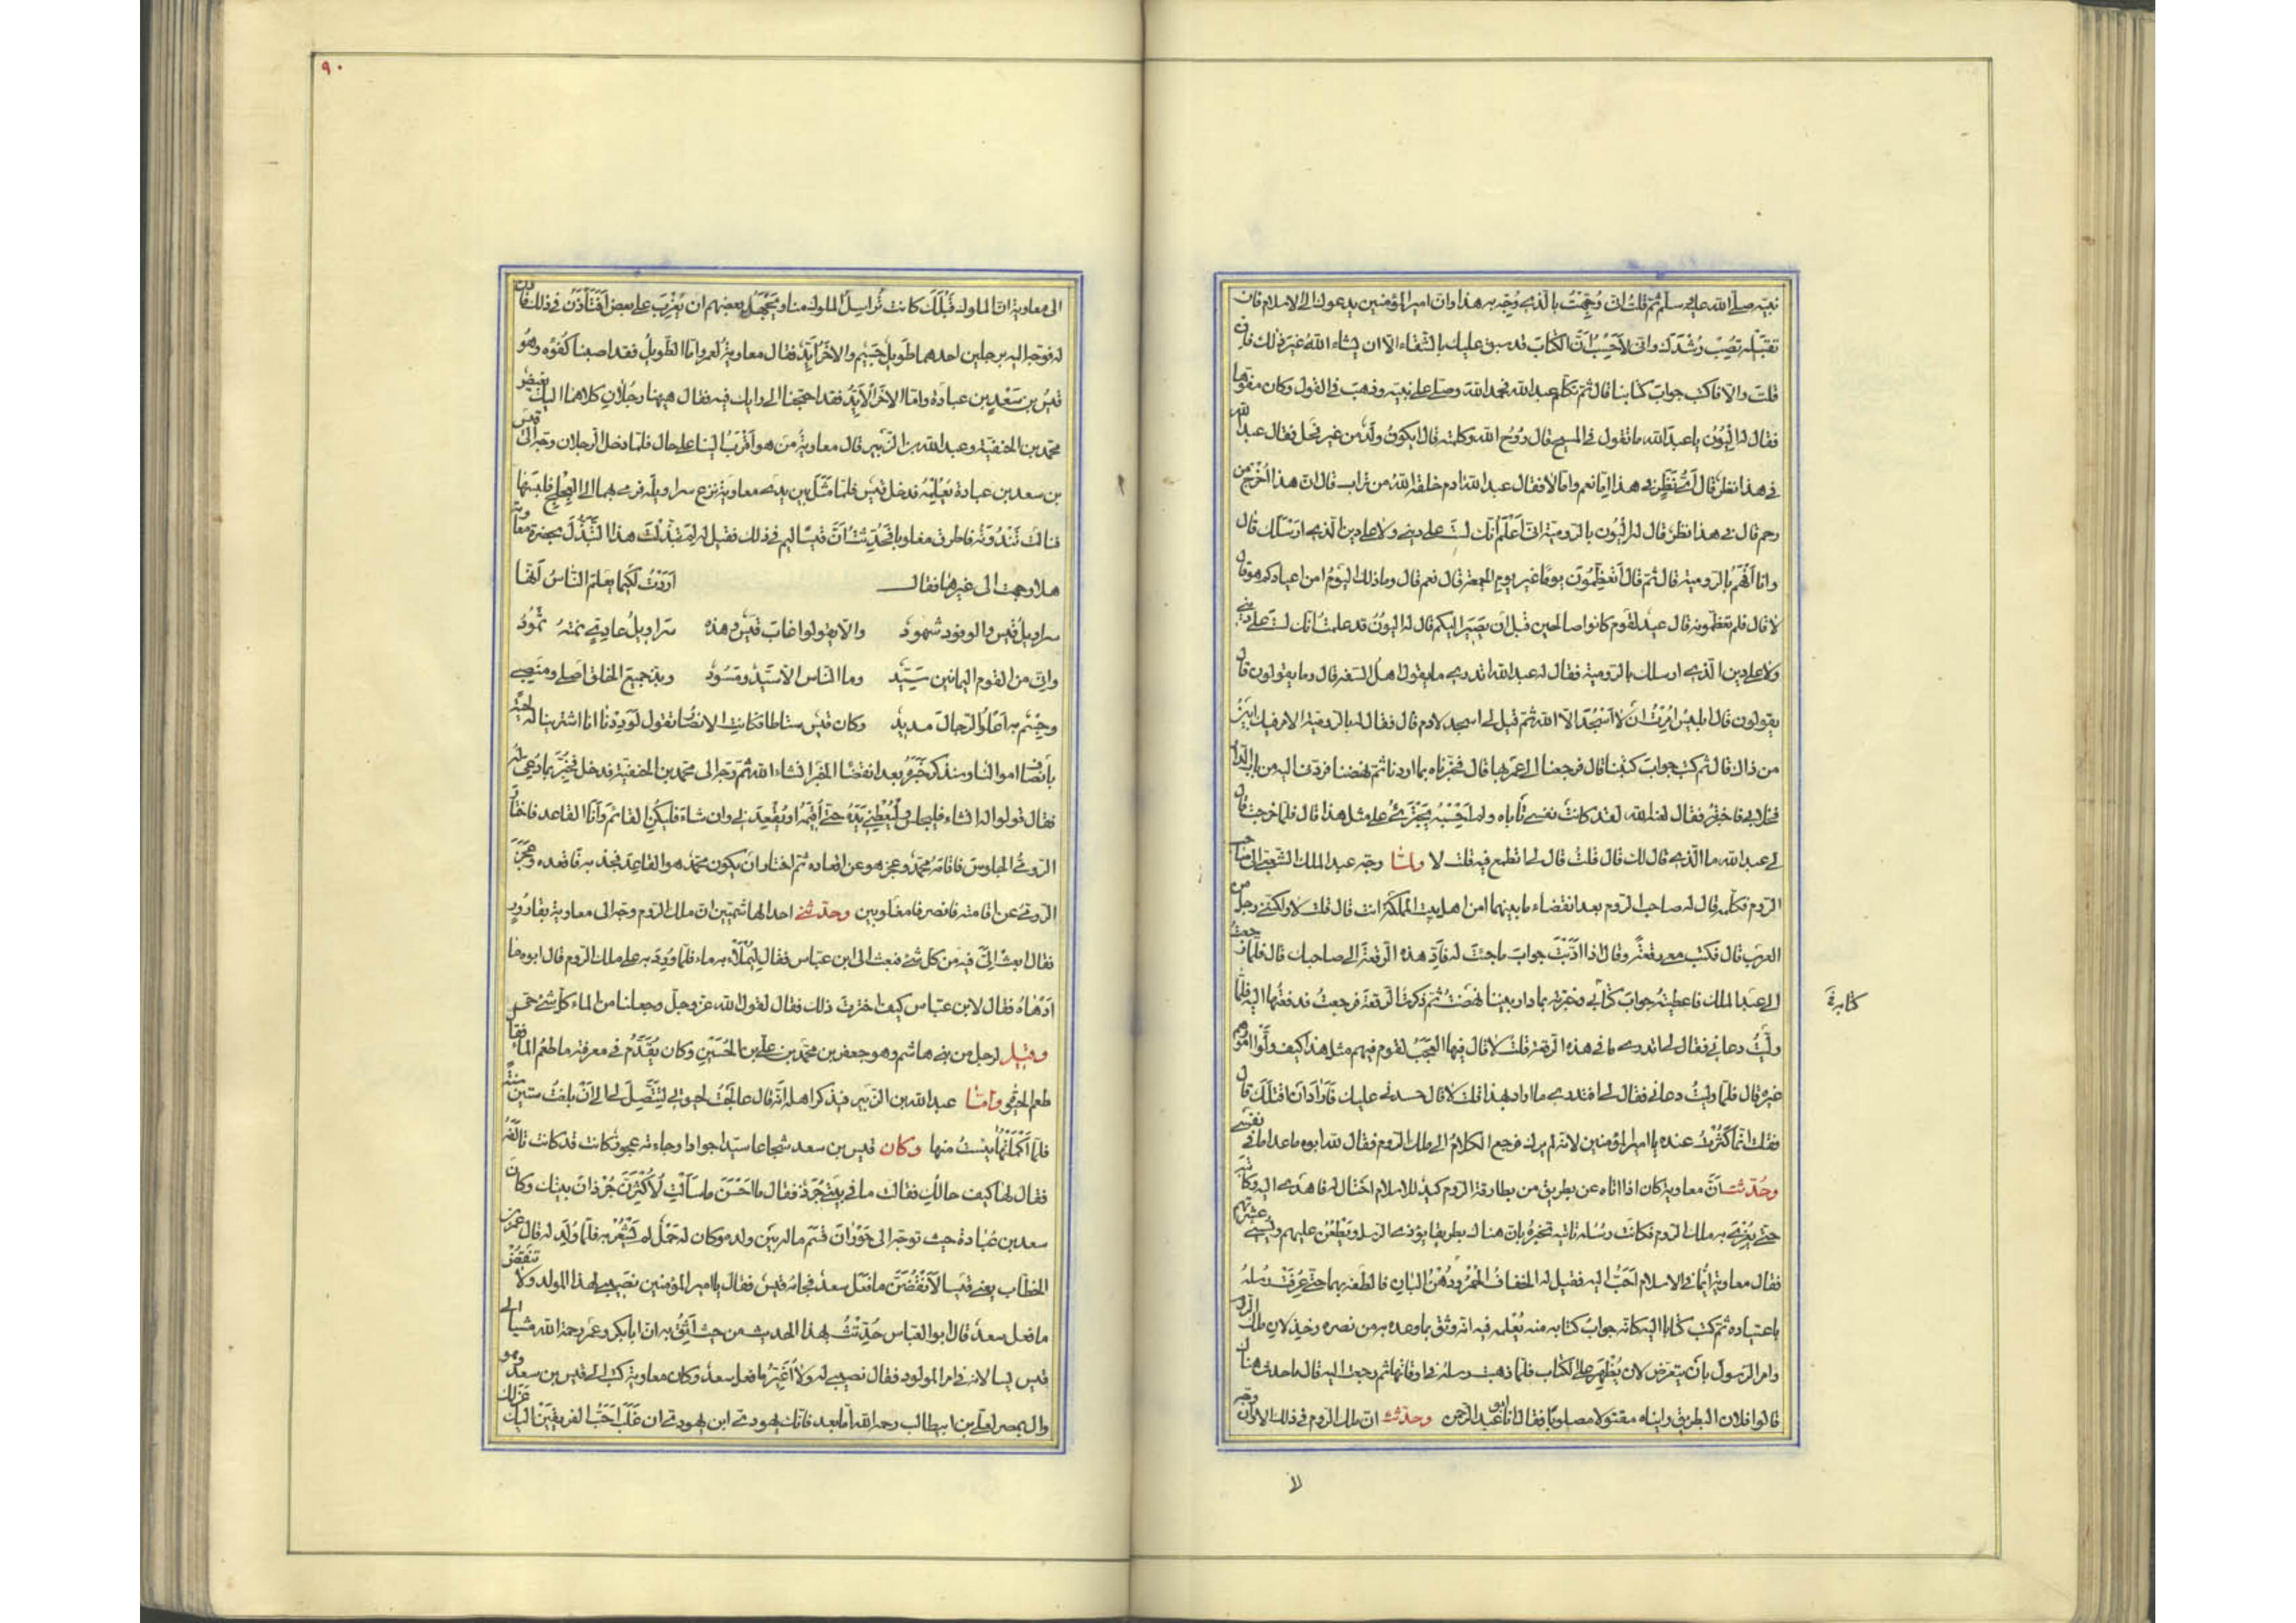 نبيّه صلى الله عليه وسلم ثم قلت انى وُجّهتُ بالذى وُجّه به هذا وان امير المؤمنين يدعوك الى الاسلام فان
تقبله تصب رشدك وانى لاحسب ان الكتاب قد سبق عليك بالشقاء الا ان يشاء الله غير ذلك فان
قلت والا فاكتب جواب كتابنا قال ثم تكلم عبد الله فحمد الله وصلى على نبيه وذهب فى القول وكان مفوّها
فقال له اليون يا عبد الله ما تقول فى المسيح قال روح الله وكلمته قال ايكون ولد من غير فحل فقال عبد الله
فى هذا نظر قال اىّ نظر فى هذا امّا نعم وامّا لا فقال عبد الله ادم خلقه الله من تراب قال ان هذا اخرج من
رحم قال فى هذا نظر قال له اليون بالرومية انى اعلم انك لست على دينى ولا على دين الذى ارسلك قال
وانا افهم بالرومية قال ثم قال اتعظمون يوما غير يوم الجمعة قال نعم قال وما ذلك اليوم امن اعيادكم هو قال
لا قال فلم تعظمونه قال عيد لقوم كانوا صالحين قبل ان يصير اليكم قال له اليون قد علمت انك لست على دينى
ولا على دين الذى ارسلك بالرومية فقال له عبد الله اتدرى ما يقول اهل السفه قال وما يقولون قال
يقولون قال ابليس امرت ان لا اسجد الا الله ثم قيل لى اسجد لادم قال فقال له بالرومية الامر فيك ابين
من ذاك قال ثم كتب جواب كتبنا قال فرجعنا الى عمر بها قال فخبّرناه بما اردنا ثم نهضنا فردّنى اليه من باب الدار
فخلا بى فاخبرته فقال لعنه الله لقد كانت نفسى تأباه ولم احسبه يجترئ على مثل هذا قال فلما خرجت قال
لى عبد الله ما الذى قال لك قال قلت قال لى اتطمع فيه قلت لا ولمّا وجّه عبد الملك الشعبى الى صاحب
الروم فكلمه قال له صاحب الروم بعد انقضاء ما بينهما امن اهل بيت المملكة انت قال قلت لا ولكنى رجل من
العرب قال فكتب معى رقعة وقال اذا ادّيت جواب ما جئت له فادّ هذه الرقعة الى صاحبك قال فلما رجعت
الى عبد الملك فاعطيته جواب كتابى وخبرته بما دار بيننا نهضت ثم ذكرت الرقعة فرجعت فدفعتها اليه فلما
ولّيت دعانى فقال لى اتدرى ما فى هذه الرقعة قلت لا قال فيها العجب لقوم فيهم مثل هذا كيف ولّوا امورهم
غيره قال فلما ولّيت دعانى فقال لى افتدرى ما اراد بهذا قلت لا قال حسدنى عليك فاراد ان اقتلك قال
فقلت انما كثرت عنده يا امير المؤمنين لانه لم يرك فرجع الكلام الى ملك الروم فقال لله ابوه ما عدا ما فى نفسى
وحُدّثت انّ معاوية كان اذا اتاه عن بطريق من بطارقة الروم كيد للاسلام احتال له فاهدى اليه وكاتبه
حتى يغرى به ملك الروم فكانت رسله تاتيه تخبره بان هناك بطريقا يؤذى الرسل ويطعن عليهم ويسئ عشرتهم
فقال معاوية ايّما فى الاسلام احبّ اليه فقيل له الخفاف الحمر ودهن البان فالطفه بهما حتى عرفت رسله
باعتياده ثم كتب كتابا اليه كانه جواب كتابه منه يعلمه فيه انه وثق بما وعده به من نصره وخذلان ملك الروم
وامر الرسول بان يتعرّض لان يظهر على الكتاب فلما ذهبت رسله فى اوقاتها ثم رجعت اليه قال ما حدث هناك
قالوا فلان البطريق رايناه مقتولا مصلوبا فقال انا ابو عبد الرحمن وحدّثت ان ملك الروم فى ذلك الاوان وجّه
كتابه
لا
٩٠
الى معاوية انّ الملوك قبلك كانت تراسل الملوك منا ويجهد بعضهم ان يغرب على بعض افتأذن فى ذلك فاذن
له فوجّه اليه برجلين احدهما طويل جسيم والاخر ايّد فقال معاوية لعمرو امّا الطويل فقد اصبنا كفؤه وهو
قيس بن سعد بن عبادة وامّا الاخر الايد فقد احتجنا الى رايك فيه فقال ههنا رجلان كلاهما اليك بغيض
محمد بن الحنفية وعبد الله بن الزبير قال معاوية من هو اقرب الينا على حال فلما دخل الرجلان وجّه الى قيس
بن سعد بن عبادة يعلمه فدخل قيس فلما مثل بين يدى معاوية نزع سراويله فرمى بها الى العلج فلبسها
فنالت ثندوته فاطرق مغلوبا فحُدّثت انّ قيسا ليم فى ذلك فقيل له لم تبذّلت هذا التبذّل بحضرة معاوية
هلا وجهت الى غيرها فقال اردت لكيما يعلم الناس انها
سراويل قيس والوفود شهود والا يقولوا غاب قيس وهذه سراويل عادىّ نمته ثمود
وانى من القوم اليمانين سيّد وما الناس الا سيّد ومسود وبذّ جميع الخلق اصلى ومنصبى
وجسم به اعلو الرجال مديد وكان قيس سناطا فكانت الانصار تقول لوددنا انا اشترينا له لحية
بانصاف اموالنا وسنذكر خبره بعد انقضاء الخبر ان شاء الله ثم وجّه الى محمد بن الحنفية فدخل فخبّر بما دعى له
فقال قولوا له ان شاء فليجلس وليعطنى يده حتى اقيمه او يقعدنى وان شاء فليكن القائم وانا القاعد فاختار
الرومىّ الجلوس فاقامه محمد وعجز هو عن اقعاده ثم اختار ان يكون محمد هو القاعد فجذبه فاقعده وعجز
الرومىّ عن اقامته فانصرفا مغلوبين وحدّثنى احد الهاشميين ان ملك الروم وجّه الى معاوية بقارورة
فقال ابعث الىّ فيه من كل شئ فبعث الى ابن عباس فقال ليملأه به ماء فلما ورد به على ملك الروم قال ابوه ما
ادهاه فقال لابن عباس كيف اخترت ذلك فقال لقول الله عز وجل وجعلنا من الماء كل شئ حى
وقيل لرجل من بنى هاشم وهو جعفر بن محمد بن على بن الحسين وكان يقدّم فى معرفته ما طعم الماء فقال
طعم الحيوة وامّا عبد الله بن الزبير فيذكر اهله انه قال عالجت لحيتى لتتصل لى الى ان بلغت ستين سنة
فلما اكملتها يئست منها وكان قيس بن سعد شجاعا سيدا جوادا وجاءته عجوز كانت قد كانت تالفه
فقال لها كيف حالك فقالت ما فى بيتى جرذ فقال ما احسن ما سألت لاكثرنّ جرذان بيتك وكان
سعد بن عبادة حيث توجّه الى حوران قسّم ماله بين ولده وكان له حمل لم يشعر به فلما ولد له قال عمر بن
الخطاب يعنى قيسا لانقضنّ ما فعل سعد فجاءه قيس فقال يا امير المؤمنين نصيبى لهذا المولد ولا تنقض
ما فعل سعد قال ابو العباس حُدّثت بهذا الحديث من حيث اثق به ان ابا بكر وعمر رحمة الله مشيا الى
قيس يسالانه فى امر المولود فقال نصيبى له ولا اغيّر ما فعل سعد وكان معاوية كتب الى قيس بن سعد وهو
وال بمصر لعلى بن ابيطالب رحمه الله امّا بعد فانك يهودى ابن يهودى ان غلب احبّ الفريقين اليك عزلك